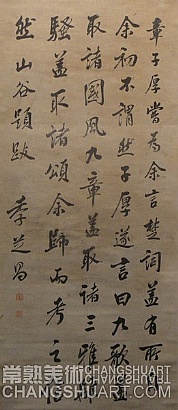 章子厚嘗為余言楚詞蓋有所
余初不謂然子厚遂言曰九歌蓋
取諸國風九章蓋取諸三雅離
騷蓋取諸頌余歸而考之信
然山谷題跋
李芝昌
常熟美術館